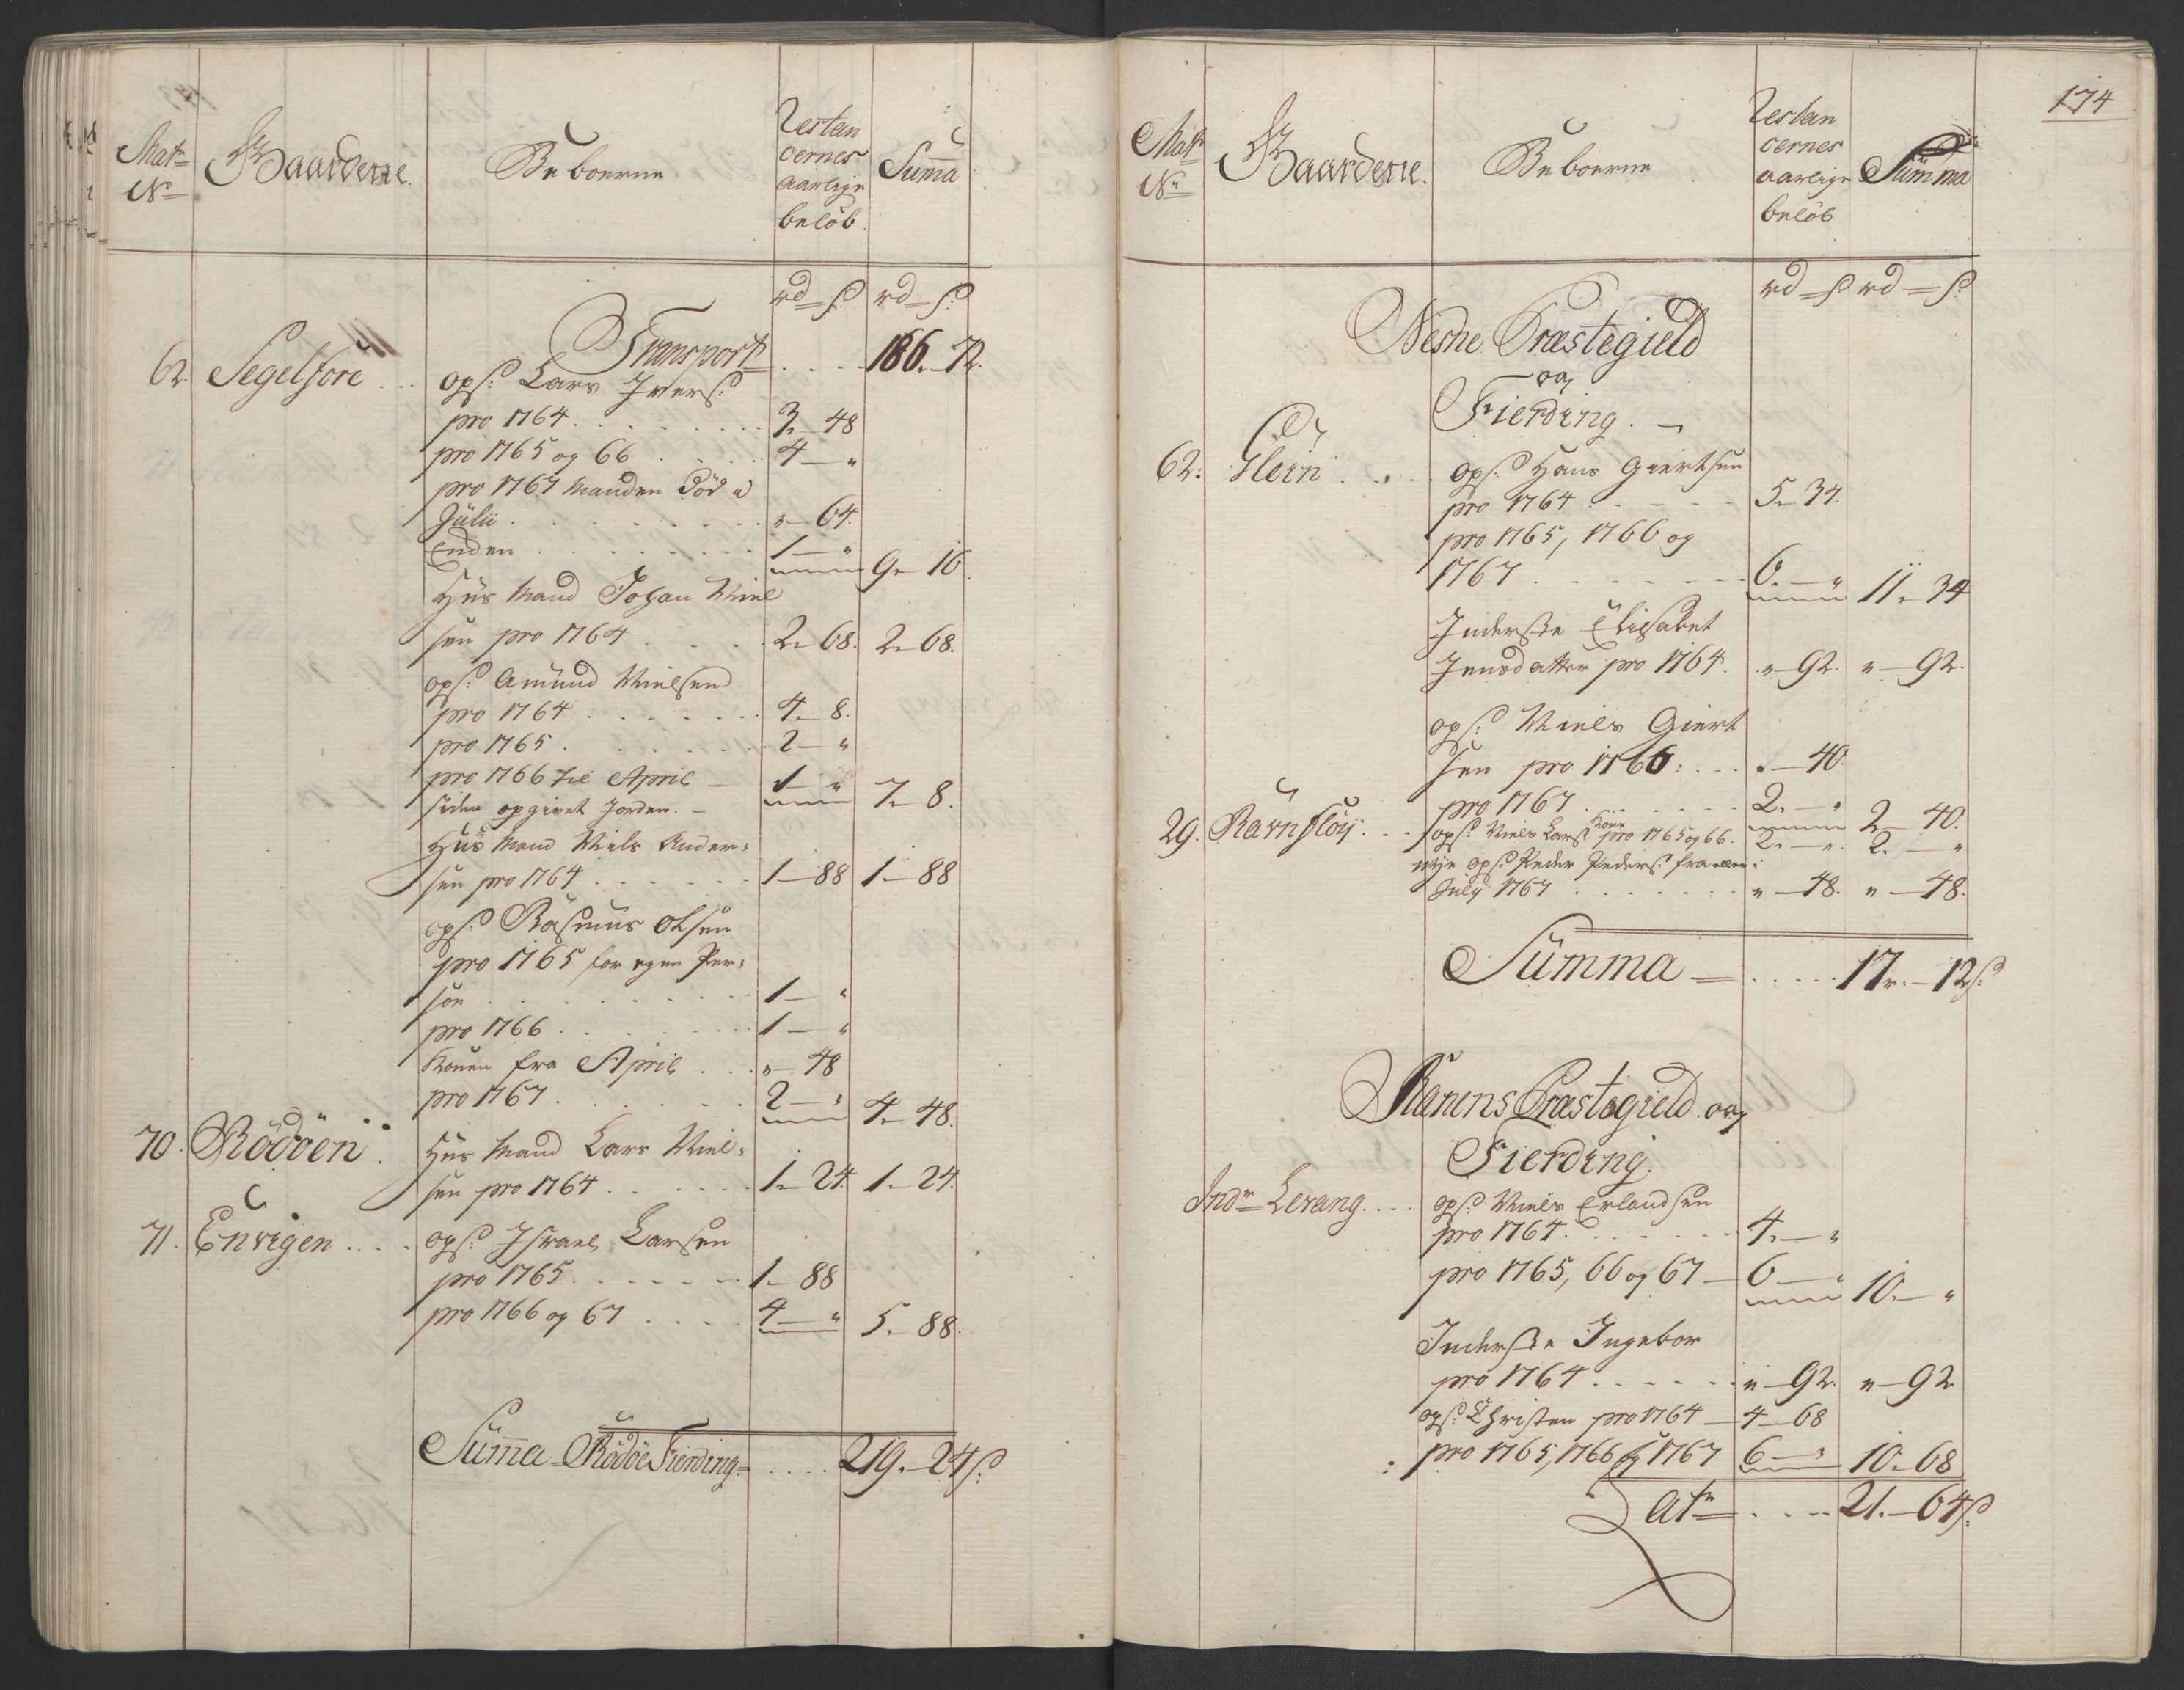 Mat:
No
Gaarderne.
Beboerne
Restan
cernes
aarlige
belöb
Summa
rd — s: rd — s:
Transport . . . . 186. 72.
62. Segelfore . . . ops: Lars Iversr:
pro 1764 . . . . 3. 48
pro 1765 og 66 . . . . 4 — "
pro 1767 Manden död i
Julii . . . . " — 64.
Enden . . . . 1 — " 9. 16.
Huus Mand Johan Niel
sen pro 1764 . . . . 2. 68. 2. 68.
ops: Amund Nielsen
pro 1764 . . . . 4. 8.
pro 1765 . . . . 2 — "
pro 1766 til April — 1 — "
siden opgivet Jorden. — 7. 8.
Huus Mand Niels Ander:
sen pro 1764 . . . . 1 — 88 1. — 88
ops: Rasmus Olsen
pro 1765 for egen Per:
son . . . . 1 — "
pro 1766 . . . . 1 — "
Konen fra April . . . " — 48
pro 1767 . . . . 2 — " 4. 48.
70. Rödöen . Huus Mand Lars Niel:
sen pro 1764 . . . . 1. 24. 1. 24.
71. Envigen . . . . ops: Israel Larsen
pro 1765 . . . . 1. 88
pro 1766 og 67 . . . . 4 — " 5. 88.
Summa Rödöe Fierding . . . . 219. 24 s:
174
Mat:
No
Gaarderne.
Beboerne
Restan
cernes
aarlige
belöb
Summa
rd — s rd — s:
Nesne Præstegield
og
Fierding. —
62. Glein . . . . ops: Hans Giertsen
pro 1764 . . . . 5. 34.
pro 1765, 1766 og
1767 . . . . 6. — " 11. 34
Inderste Elisabet
Jensdatter pro 1764. . " 92. " — 92.
ops: Niels Giert
sen pro 1766: . . . " — 40
pro 1767 . . . . 2. — " 2 — 40.
29. Ravnfloij . . . ops: Niels Lars: Kone pro 1765 og 66. 2. — ". 2. — "
nye ops: Peder Peders: fra
July 1767 . . . . " — 48. " — 48.
Summa — . . . . 17. — 12 s:
Ranens Præstegield og
Fierding.
Indr Lerang . . . . ops: Niels Erlandsen
pro 1764. . . . 4. — "
pro 1765, 66 og 67 — 6 — " 10. — "
Inderste Ingebor
pro 1764 . . . . " — 92. " — 92
ops: Christen pro 1764 — 4 — 68
pro 1765, 1766 og 1767 6 — " 10. 68
Latr . . . . 21. — 64 s: